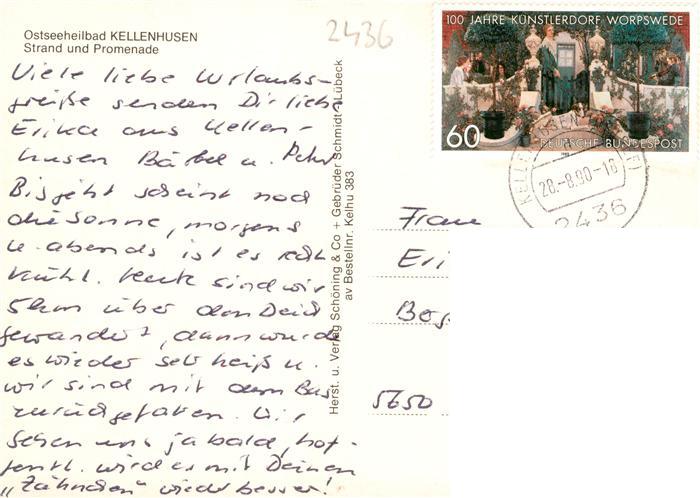 Ostseeheilbad KELLENHUSEN
Strand und Promenade
2436
Viele liebe Urlaubs-
grüße senden Dir liebe
Erika aus Kellen-
husen Bärbel u. Peter
Bisjetzt scheint noch
die Sonne, morgens
u. abends ist es recht
kühl. Heute sind wir
5km über den Deich
gewandert, dann wurde
es wieder sehr heiß u.
wir sind mit dem Bus
zurückgefahren. Wir
sehen uns ja bald, hof-
fentl. wird es mit Deinen
„Zähnchen" wieder besser!
Herst. u. Verlag Schöning & Co + Gebrüder Schmidt - Lübeck
av Bestellnr. Kelhu 383
100 JAHRE KÜNSTLERDORF WORPSWEDE
60 DEUTSCHE BUNDESPOST
28.-8.90-16
2436
Frau
Eri
5650